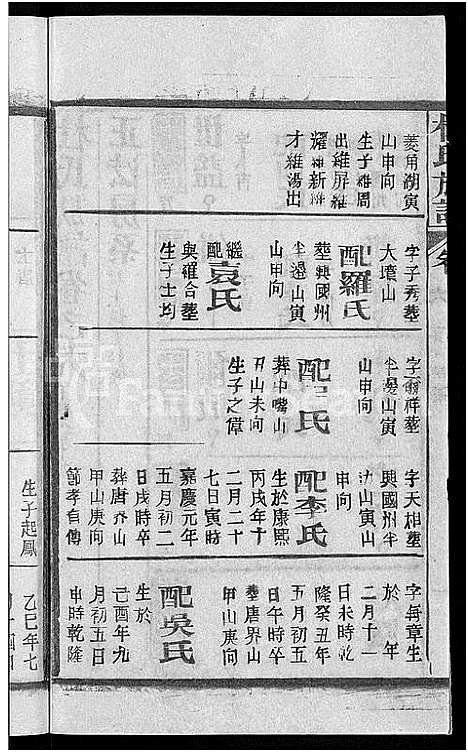 菱角湖寅
山申向
生子維周
出維屏維
耀維新維
才維湯出
字子秀葬
大墳山
配羅氏
葬興國州
半邊山寅
山申向
繼配袁氏
與羅合葬
生子士均
祥葬
半邊山寅
山申向
氏
葬中嘴山
丑山未向
生子之偉
字天相葬
興國州半
边山寅山
申向
配李氏
生於康熙
丙戌年十
二月二十
七日寅時
嘉慶元年
五月初二
日戌時卒
葬唐界山
甲山庚向
節孝自傳
章生
於年
二月十一
日未時乾
隆癸丑年
五月初五
日午時卒
葬唐界山
甲山庚向
配吳氏
生於
己酉年九
月初五日
申時乾隆
氏族譜
生子起鳳
乙巳年七